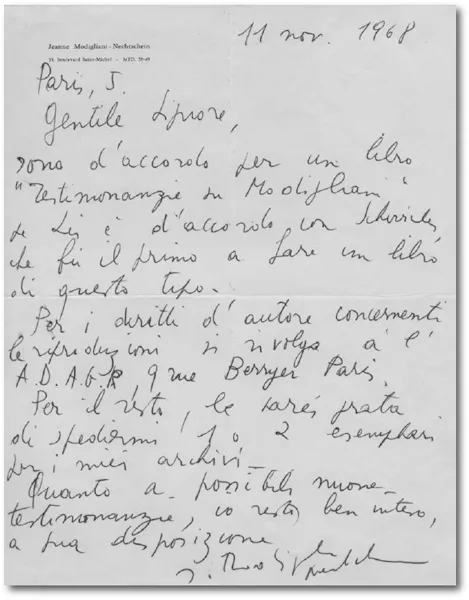 Jeanne Modigliani-Nechtschein
11 nov. 1968
boulevard Saint-Michel
Paris, 5.
Gentile Signore,
sono d'accordo per un libro
"Testimonanzie su Modigliani"
se Lei è d'accordo con
che fu il primo a fare un libro
di questo tipo.
Per i diritti d'autore concernenti
le riproduzioni si rivolga à l'
A.D.A.G.P, 9 rue Berryer Paris.
Per il resto, le sarei grata
di spedirmi 1 o 2 esemplari
per i miei archivi_
Quanto a possibili nuove
testimonanzie, io resto, ben inteso,
a sua disposizione